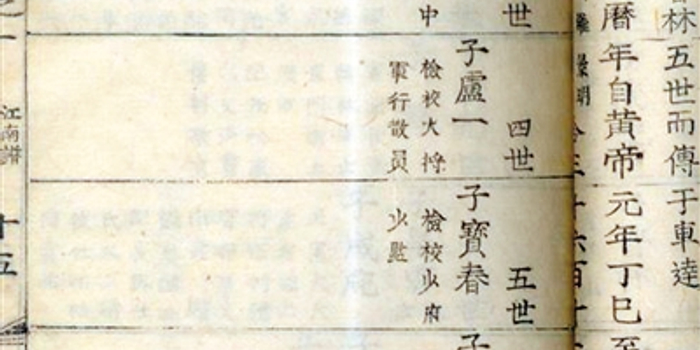 林五世而傳于車達
曆年自黄帝元年丁巳至
世
中
四世
子盧一
檢校大將
軍行散員
五世
子寶春
檢校少府
少監
子
江南譜
十五